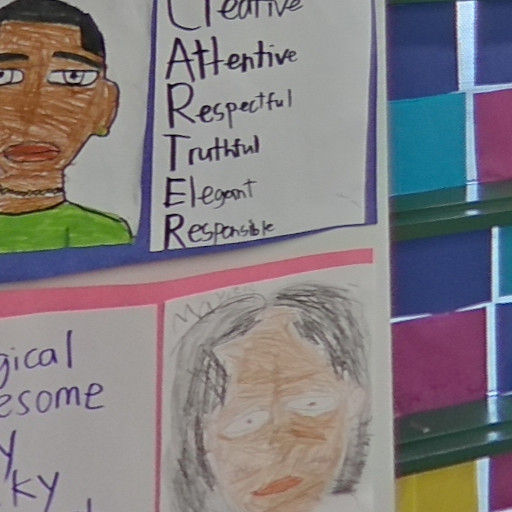 Creative
Attentive
Respectful
Truthful
Elegant
Responsible
gical
esome
y
ky